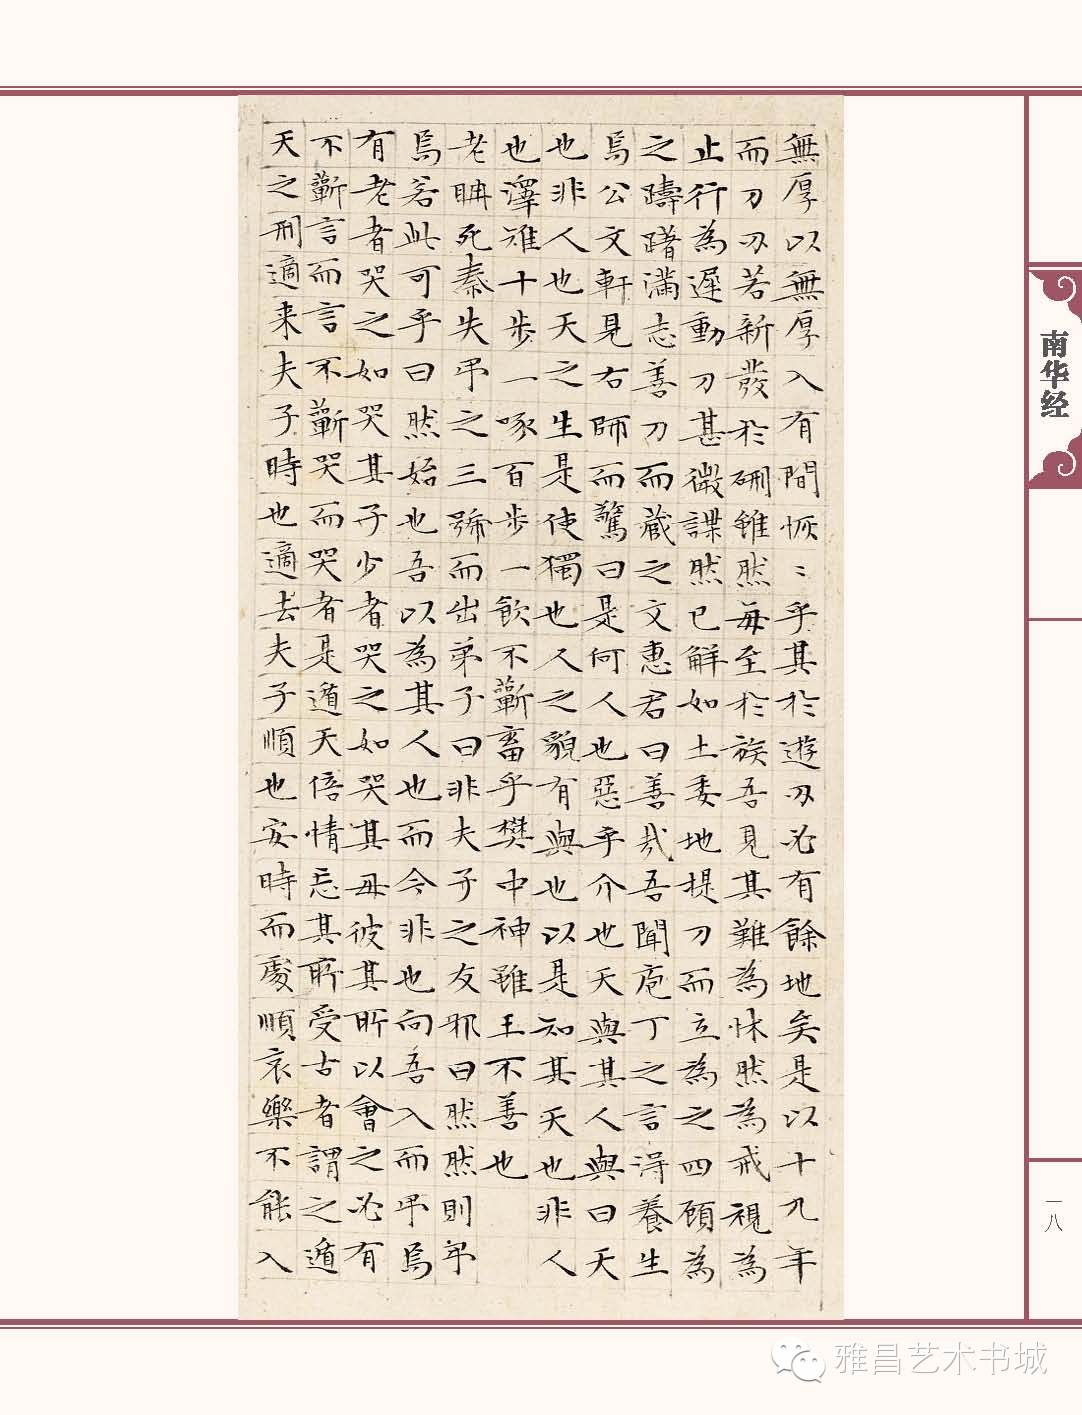 無厚以無厚入有間恢〻乎其於遊刃必有餘地矣是以十九年
而刀刃若新發於硎雖然每至於族吾見其難為怵然為戒視為
止行為遲動刀甚微謋然已解如土委地提刀而立為之四顧為
之躊躇滿志善刀而藏之文惠君曰善哉吾聞庖丁之言淂養生
焉公文軒見右師而驚曰是何人也惡乎介也天與其人與曰天
也非人也天之生是使獨也人之貌有與也以是知其天也非人
也澤雉十步一啄百步一飲不蘄畜乎樊中神雖王不善也
老聃死秦失弔之三號而出弟子曰非夫子之友邪曰然然則弔
焉若此可乎曰然始也吾以為其人也而今非也向吾入而弔焉
有老者哭之如哭其子少者哭之如哭其母彼其所以會之必有
不蘄言而言不蘄哭而哭者是遁天倍情忘其所受古者謂之遁
天之刑適来夫子時也適去夫子順也安時而處順哀樂不能入
南华经
一八
雅昌艺术书城